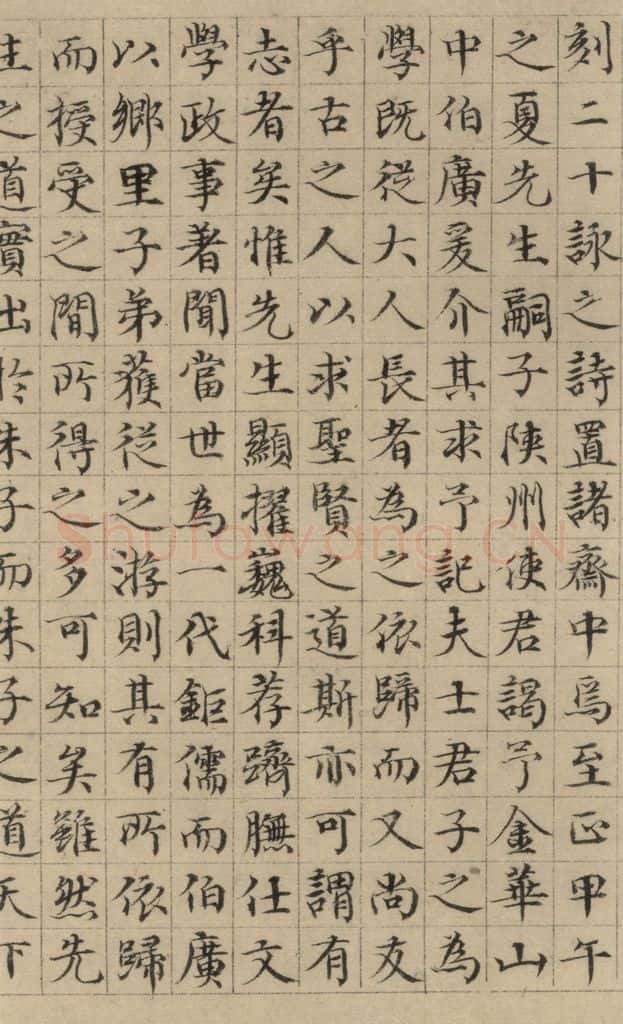 刻二十詠之詩置諸齋中焉至正甲午
之夏先生嗣子陝州使君謁予金華山
中伯廣爰介其求予記夫士君子之為
學既從大人長者為之依歸而又尚友
乎古之人以求聖賢之道斯亦可謂有
志者矣惟先生顯擢巍科荐躋膴仕文
學政事著聞當世為一代鉅儒而伯廣
以鄉里子弟獲從之游則其有所依歸
而授受之間所得之多可知矣雖然先
生之道實出於朱子而朱子之道天下
Shufawang.CN